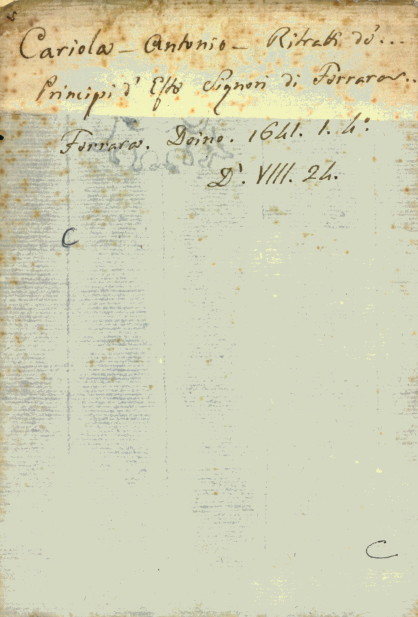 Cariola - Antonio - Ritratti de'...
Principi d'Este Signori di Ferrara..
Ferrara. 1641. 1. 4°.
D'. VIII. 24.
C
C